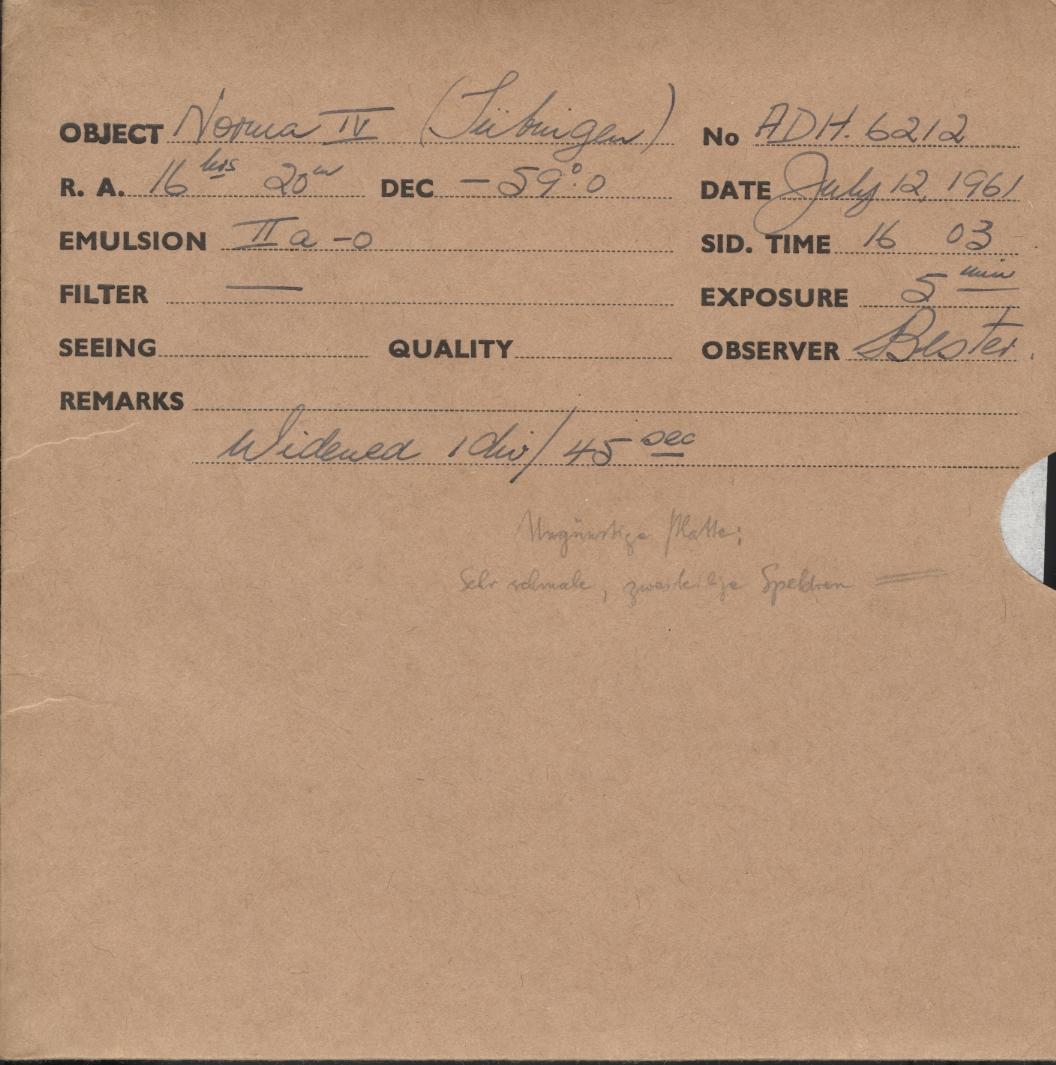 OBJECT Norma IV (Tübingen) No ADH. 6212
R. A. 16 hrs 20m DEC -59°.0 DATE July 12, 1961
EMULSION IIa-o SID. TIME 16 03
FILTER — EXPOSURE 5 min
SEEING QUALITY OBSERVER Bester.
REMARKS
Widened 1 div/45 sec
Ungünstige Platte;
Sehr schmale, zweiteilige Spektren